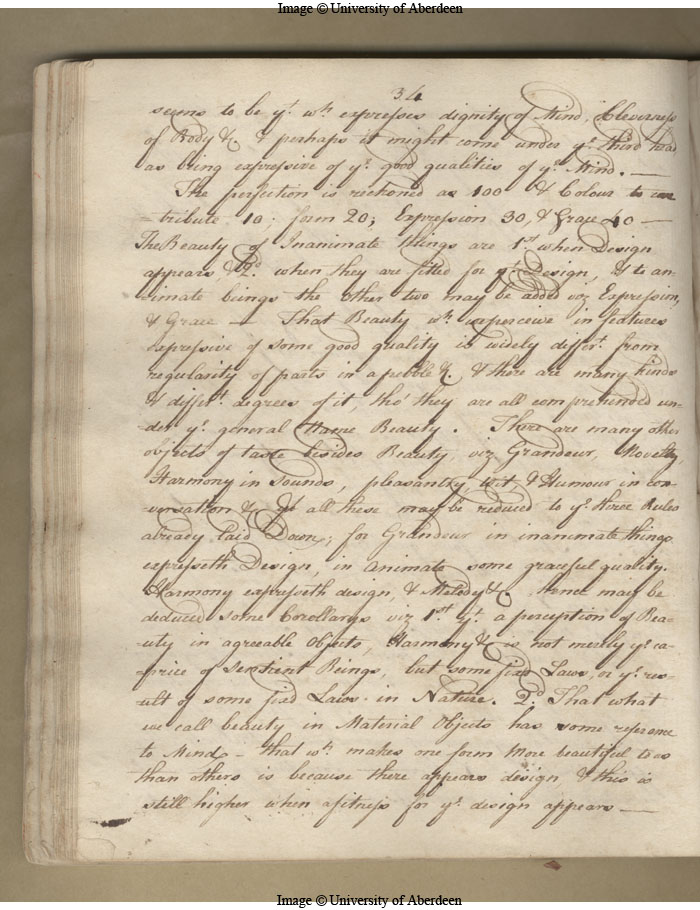 Image © University of Aberdeen
34
seems to be yt. wh. expresses dignity of Mind, Cleverness
of Body &c. & perhaps it might come under ye. third head
as being expressive of ye. good qualities of ye. Mind. —
The perfection is reckoned as 100 & Colour to con
-tribute 10; form 20; Expression 30, & Grace 40 —
The Beauty of Inanimate things are 1st. when Design
appears, & 2d. when they are fitted for yt. Design, & to an-
-imate beings the other two may be added viz Expression,
& Grace — That Beauty wh. we perceive in features
expressive of some good quality is widely differt. from
regularity of parts in a pebble &c. & there are many kinds
& differt. degrees of it, tho' they are all comprehended un-
der ye. general Name Beauty. There are many other
objects of taste besides Beauty, viz Grandeur, Novelty,
Harmony in Sounds, pleasantry, wit & Humour in con-
-versation &c. Yt all these may be reduced to ye. three Rules
already Laid Down; for Grandeur in inanimate things
expresseth Design, in animate some graceful quality.
Harmony expresseth design, & Melody &c. hence may be
deduced some Corollarys viz 1st. yt. a perception of Bea-
-uty in agreeable Objects, Harmony &c. is not merely ye. ca-
-price of Sentient Beings, but some fixd Laws, or ye. res-
-ult of some fixd Laws in Nature. 2d. That what
we call beauty in Material Objects has some reference
to Mind — that wh. makes one form more beautiful to us
than others is because there appears design & this is
still higher when a fitness for ye. design appears —
Image © University of Aberdeen